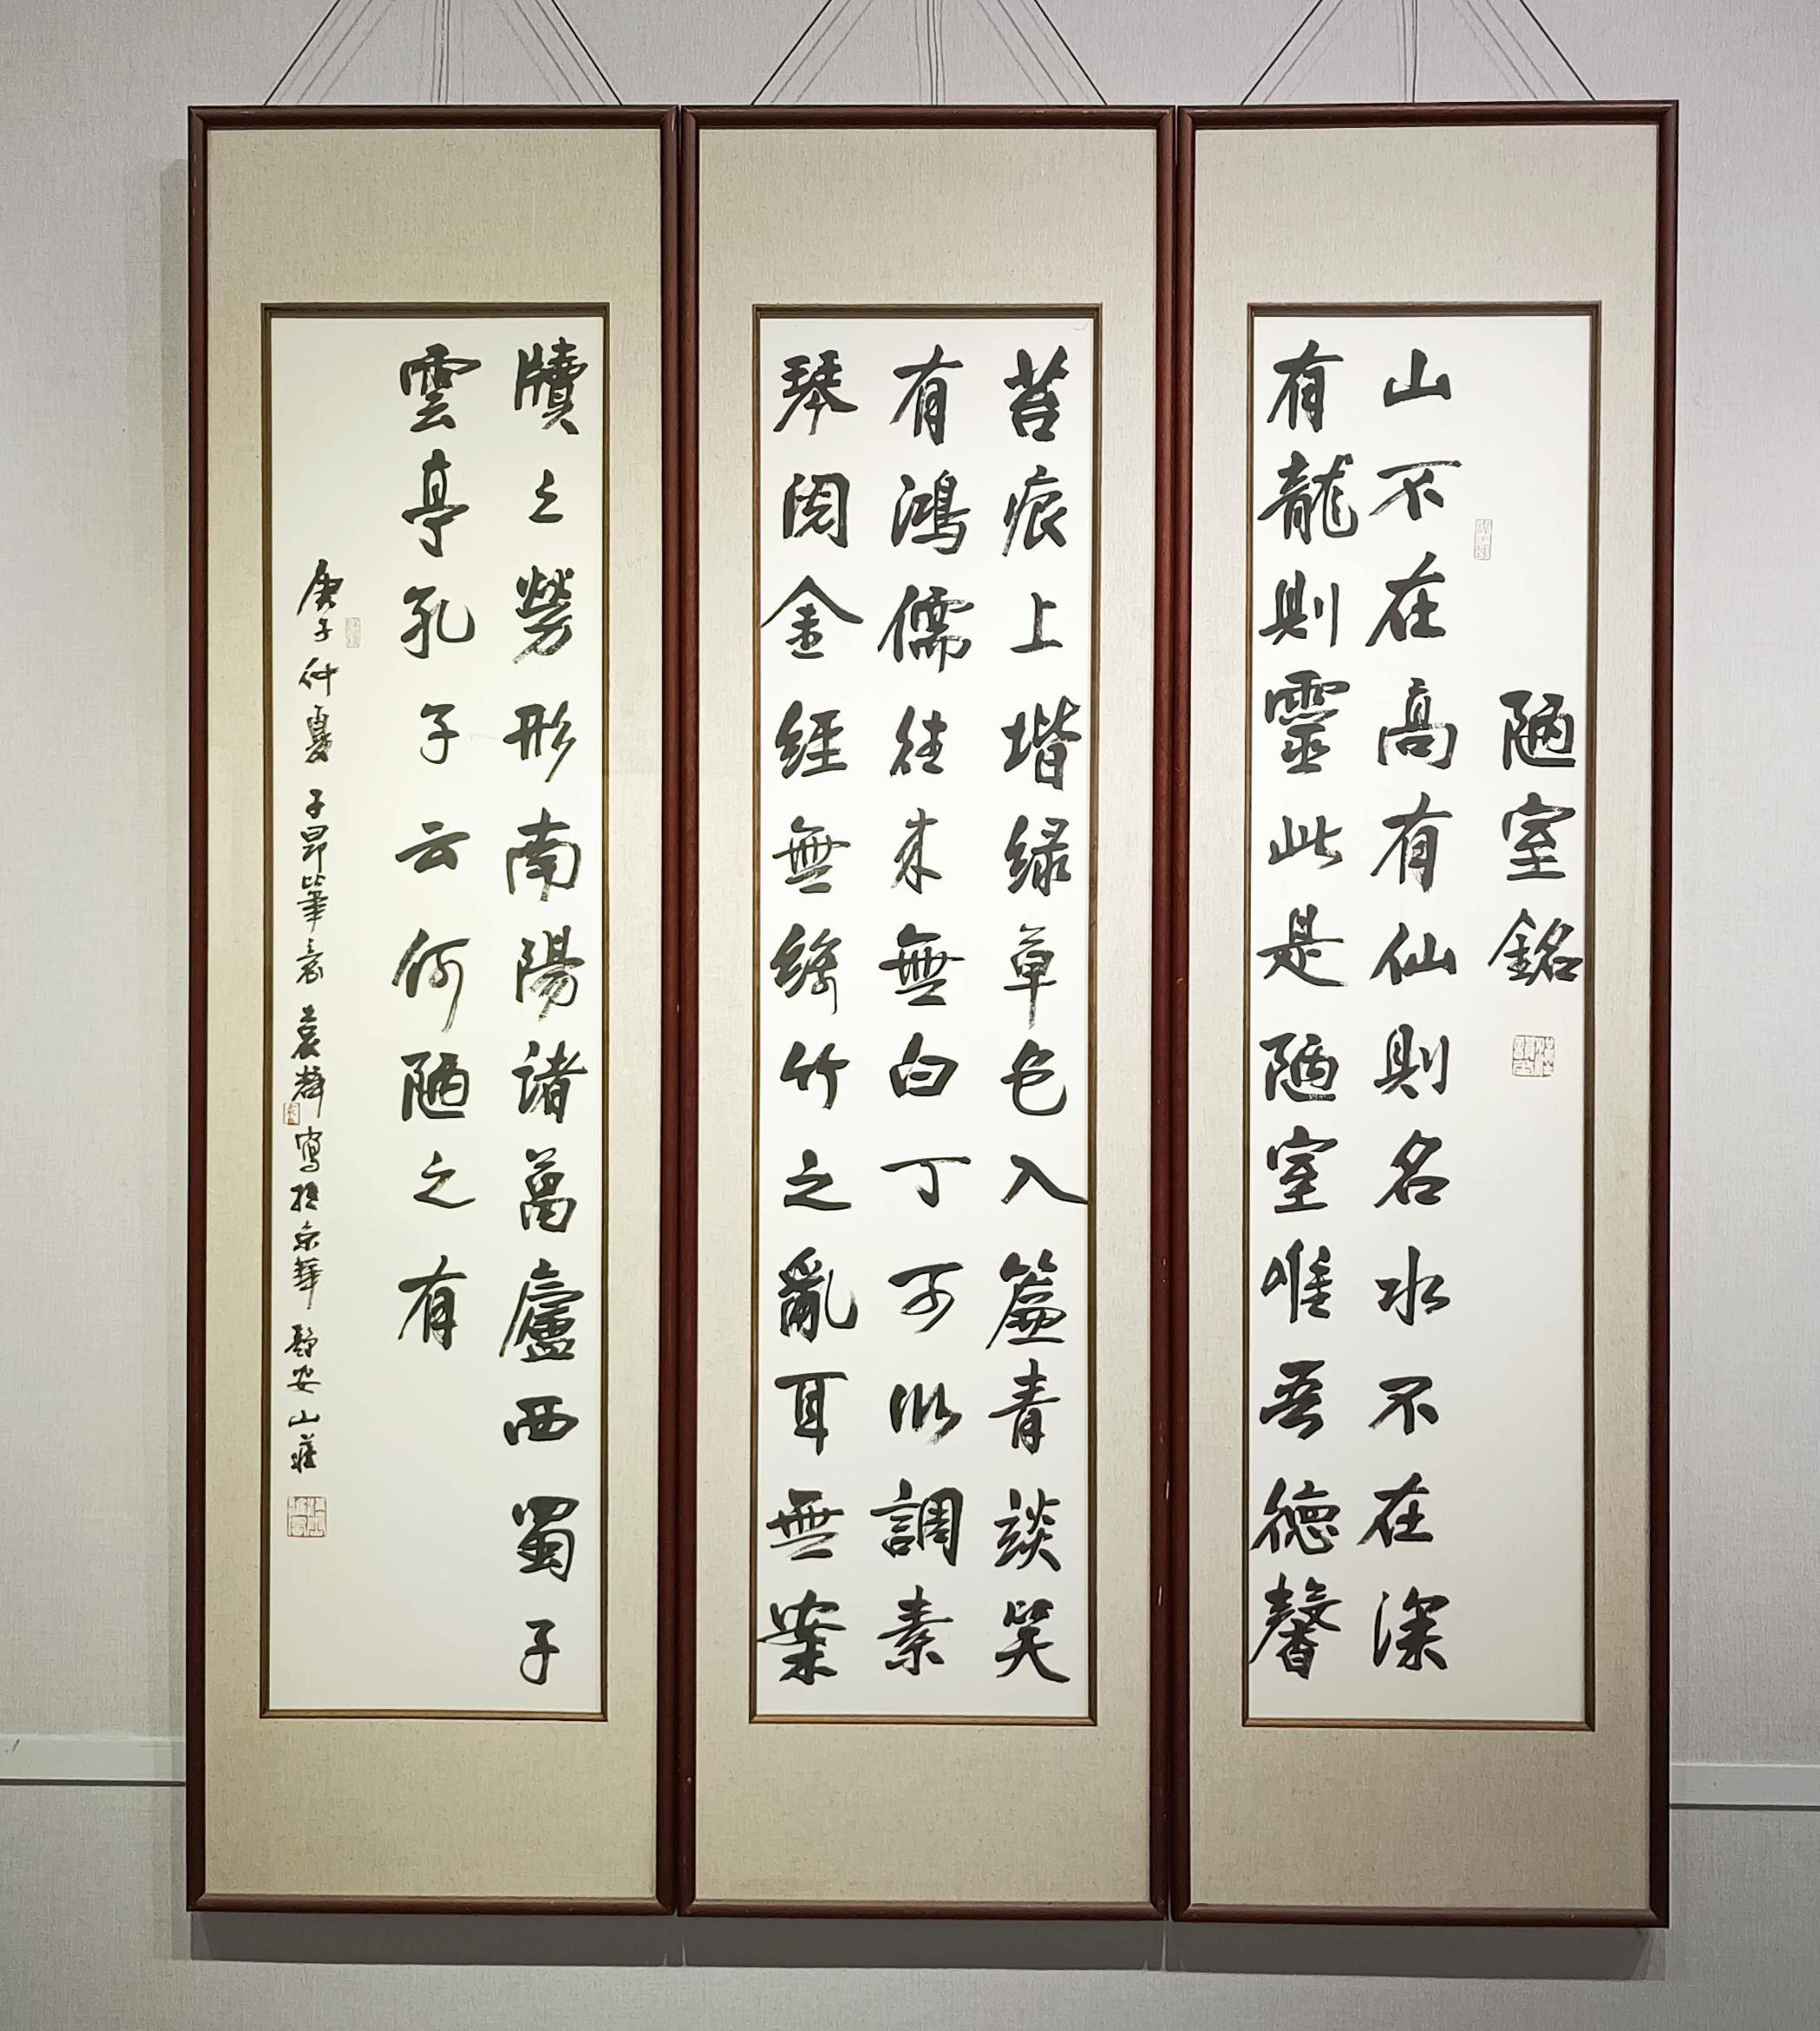 陋室銘
山不在高有仙則名水不在深
有龍則靈此是陋室唯吾德馨
苔痕上堦緑草色入簾青談笑
有鴻儒往来無白丁可以調素
琴閱金經無絲竹之亂耳無案
牘之勞形南陽諸葛廬西蜀子
雲亭孔子云何陋之有
庚子仲夏子昂筆意袁輝寫於京華靜安山莊